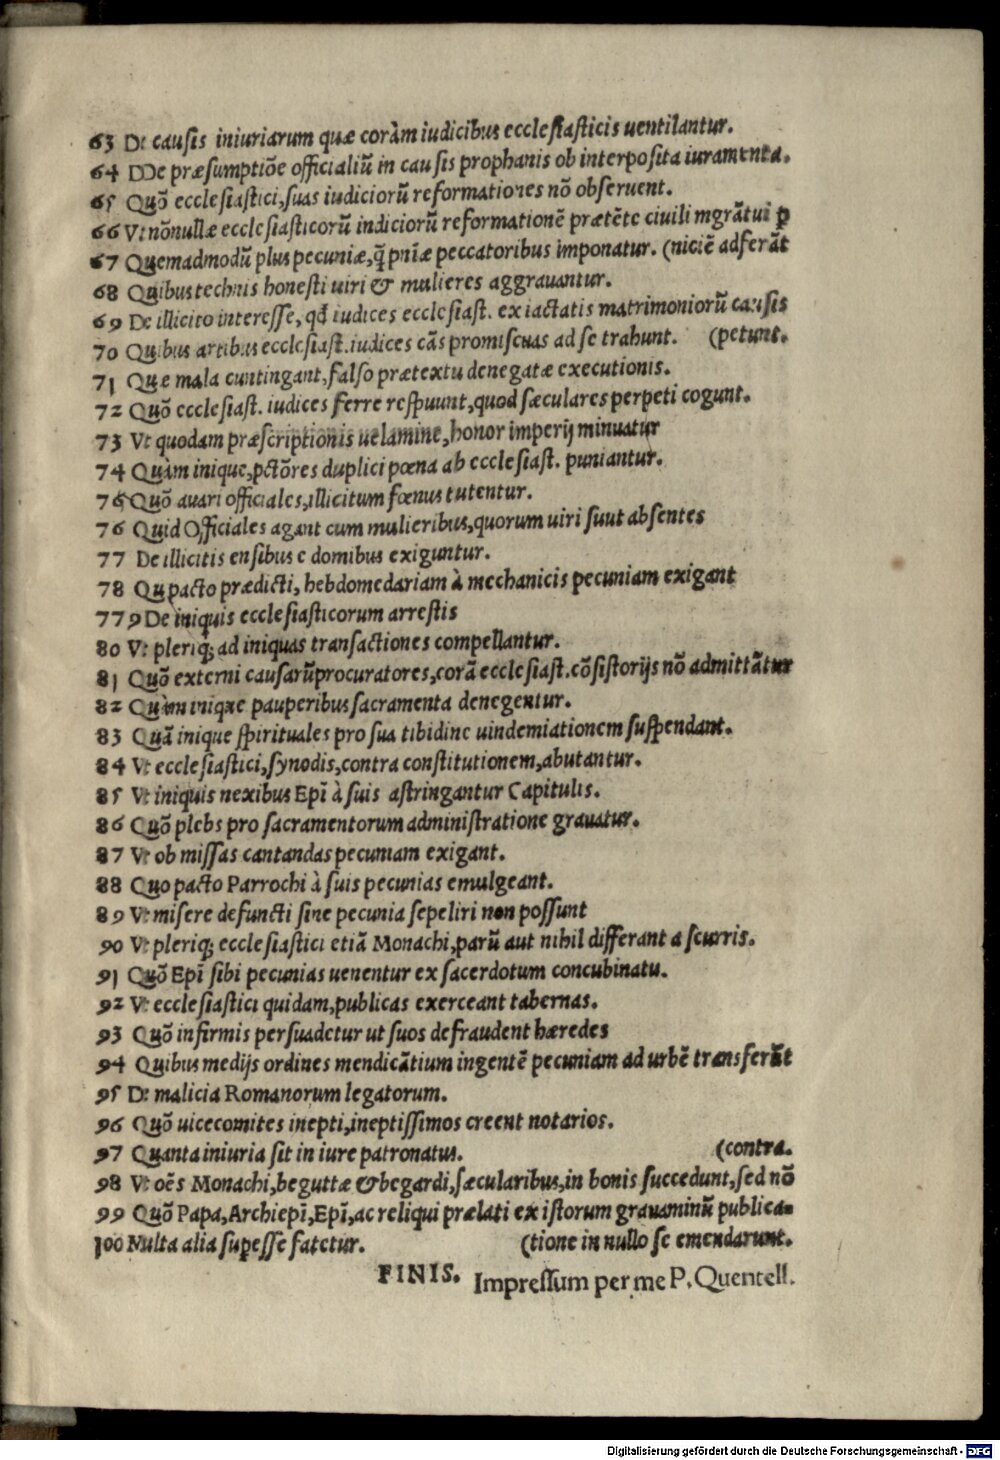 63 De causis iniuriarum quæ coràm iudicibus ecclesiasticis uentilantur.
64 DDe præsumptiõe officialiũ in causis prophanis ob interposita iuramenta.
65 Quõ ecclesiastici, suas iudiciorũ reformatiores nõ obseruent.
66 Vt nõnullæ ecclesiasticorũ indiciorũ reformationẽ prætẽtẽ ciuili mgrãtui ꝑ
67 Quemadmodũ plus pecuniæ, q̃ pnĩæ peccatoribus imponatur. (niciẽ adferãt
68 Quibus technis honesti uiri & mulieres aggrauantur.
69 De illicito interesse, qđ iudices ecclesiast. ex iactatis matrimoniorũ causis
70 Quibus artibus ecclesiast. iudices cãs promiscuas ad se trahunt. (petunt.
71 Quæ mala cuntingant, falso prætextu denegatæ executionis.
72 Quõ ecclesiast. iudices ferre respuunt, quod sæculares perpeti cogunt.
73 Vt quodam præscriptionis uelamine, honor imperij minuatur
74 Quàm inique, pctõres duplici pœna ab ecclesiast. puniantur.
75 Quõ auari officiales, illicitum fœnus tutentur.
76 Quid Officiales agant cum mulieribus, quorum uiri suut absentes
77 De illicitis ensibus e domibus exiguntur.
78 Qu pacto prædicti, hebdomedariam à mechanicis pecuniam exigant
779 De iniquis ecclesiasticorum arrestis
80 Vt pleriq; ad iniquas transactiones compellantur.
81 Quõ externi causarũ procuratores, corã ecclesiast. cõsistorijs nõ admittãtur
82 Quàm inique pauperibus sacramenta denegentur.
83 Quã inique spirituales pro sua tibidine uindemiationem suspendant.
84 Vt ecclesiastici, synodis, contra constitutionem, abutantur.
85 Vt iniquis nexibus Epĩ à suis astringantur Capitulis.
86 Quõ plebs pro sacramentorum administratione grauatur.
87 Vt ob missas cantandas pecuniam exigant.
88 Quo pacto Parrochi à suis pecunias emulgeant.
89 Vt misere defuncti sine pecunia sepeliri non possunt
90 Vt pleriq; ecclesiastici etiã Monachi, parũ aut nihil differant a scurris.
91 Quõ Epĩ sibi pecunias uenentur ex sacerdotum concubinatu.
92 Vt ecclesiastici quidam, publicas exerceant tabernas.
93 Quõ infirmis persuadetur ut suos defraudent hæredes
94 Quibus medijs ordines mendicãtium ingentẽ pecuniam ad urbẽ transferãt
95 De malicia Romanorum legatorum.
96 Quõ uicecomites inepti, ineptissimos creent notarios.
97 Quanta iniuria sit in iure patronatus. (contra.
98 Vt oẽs Monachi, beguttæ & begardi, sæcularibus, in bonis succedunt, sed nõ
99 Quõ Papa, Archiepĩ, Epĩ, ac reliqui prælati ex istorum grauaminũ publica-
100 Multa alia supesse fatetur. (tione in nullo se emendarunt.
FINIS. Impressum per me P. Quentell.
Digitalisierung gefördert durch die Deutsche Forschungsgemeinschaft - DFG